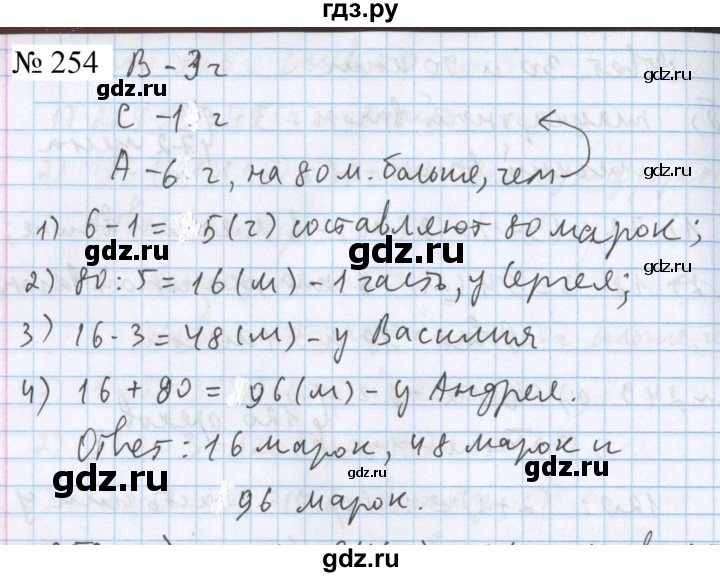 гдз.ру
№ 254 В - 3 г
gdz.ru gdz.ru
С - 1 г
gdz.ru
А - 6 г, на 80 м. больше, чем
1) 6 - 1 = 5 (г) составляют 80 марок;
gdz.ru gdz.ru gdz.ru
2) 80 : 5 = 16 (м) - 1 часть, у Сергея;
3) 16 · 3 = 48 (м) - у Василия
gdz.ru gdz.ru
4) 16 + 80 = 96 (м) - у Андрея.
Ответ: 16 марок, 48 марок и
gdz.ru gdz.ru gdz.ru
96 марок.
gdz.ru
gdz.ru